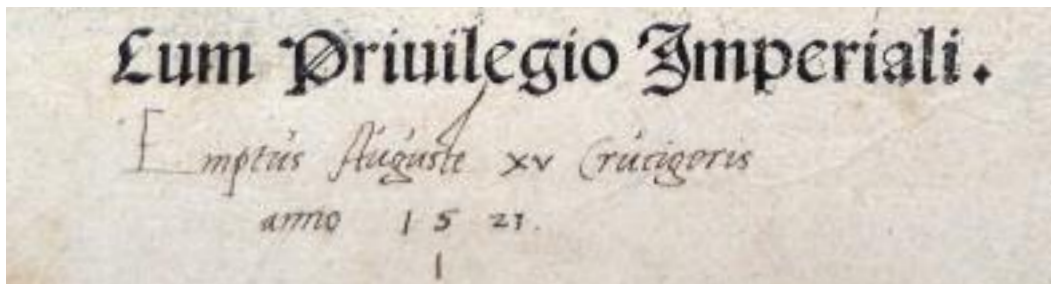 Cum Priuilegio Imperiali.
Emptus Auguste xv Crucigeris
anno 1521.
1